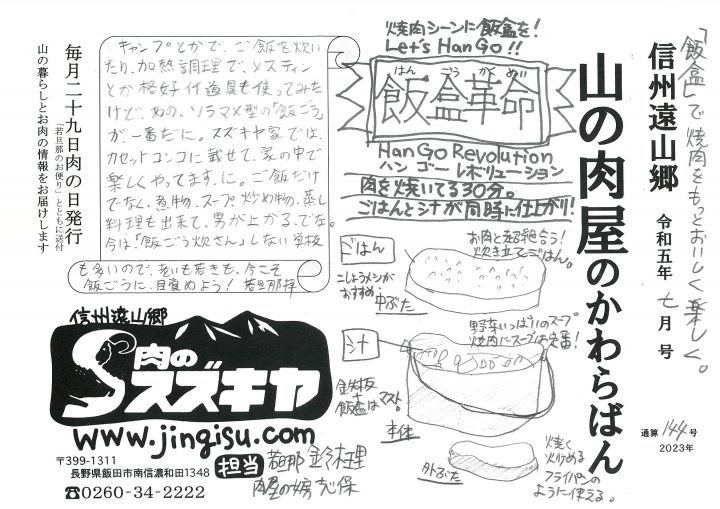 「飯盒」で焼肉をもっとおいしく楽しく。
信州遠山郷
令和五年 七月号
山の肉屋のかわらばん
通算144号
2023年
焼肉シーンに飯盒を!
Let's HanGo!!
はん ごう かく めい
飯盒革命
HanGo Revolution
ハン ゴー レボリューション
肉を焼いてる30分。
ごはんとシナが同時に仕上がり!
ごはん
お肉と超絶合う!
炊き立てごはん。
こしょうメシが
おすすめ。
中ぶた
汁
野菜いっぱいのスープ
焼肉にスープは定番!
鉄板
+
飯盒はマスト。
本体
外ぶた
焼く
炒める
フライパンの
ように使える。
キャンプとかで、ご飯を炊い
たり、加熱調理で、メスティン
とか格好付道具も使ってみた
けど、あの、ソラマメ型の「飯ごう」
が一番だに。スズキヤ家では、
カセットコンロに載せて、家の中で
楽しくやってます、に。ご飯だけ
でなく、煮物、スープ、炒め物、蒸し
料理も出来て、男が上がる、でな。
今は「飯ごう炊さん」しない学校
も多いので、老いも若きも、今こそ
飯ごうに、目覚めよう! 若旦那拝
毎月二十九日肉の日発行
「若旦那のお便り」とともに送付
山の暮らしとお肉の情報をお届けします
信州遠山郷
肉の
スズキヤ
www.jingisu.com
〒399-1311
長野県飯田市南信濃和田1348
☎0260-34-2222
担当
若旦那 鈴木理
肉屋の女房 志保